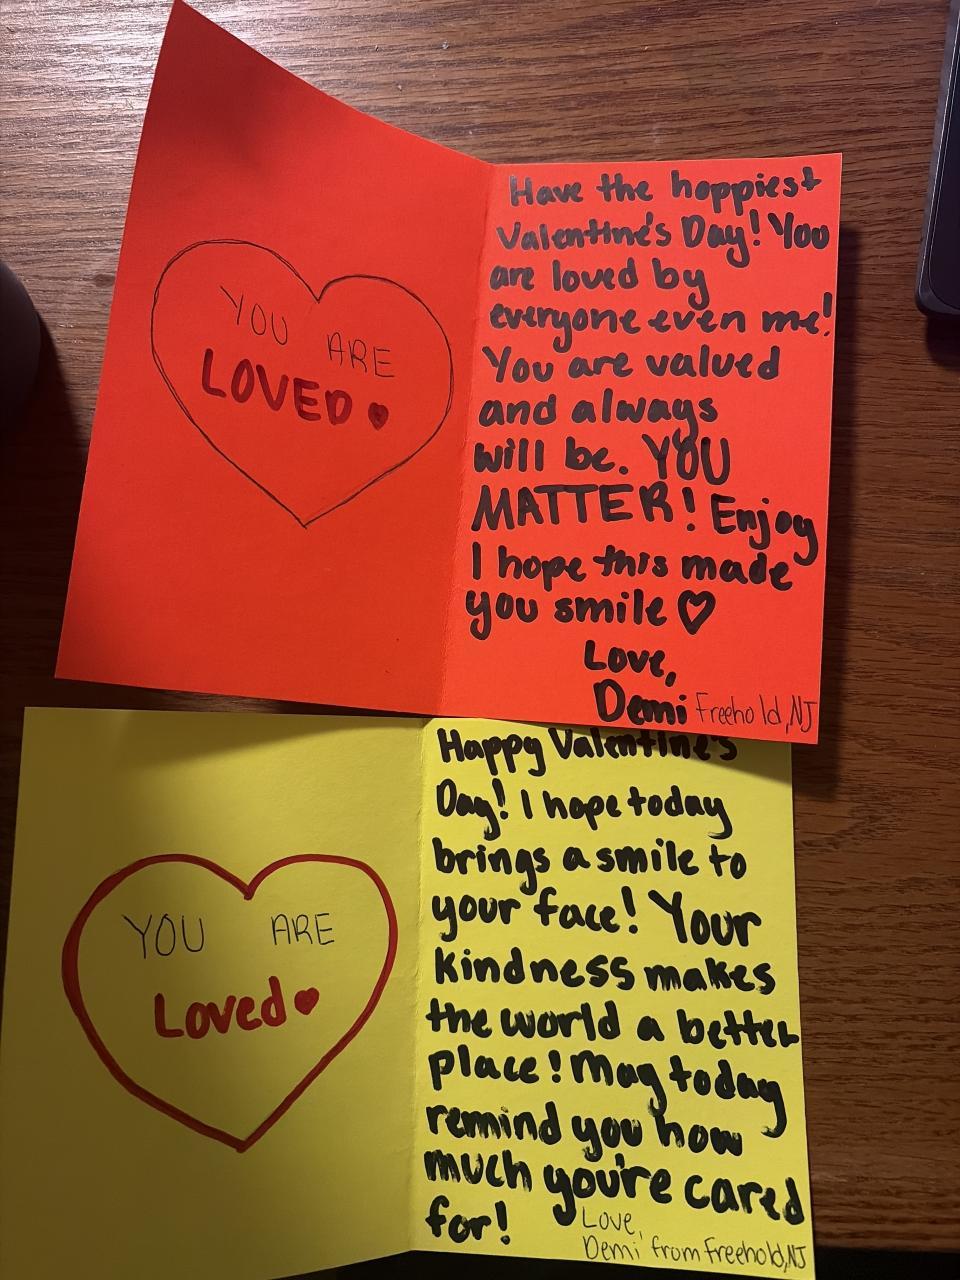 YOU ARE
LOVED
Have the happiest
Valentine's Day! You
are loved by
everyone even me!
You are valued
and always
will be. YOU
MATTER! Enjoy
I hope this made
you smile ♡
Love,
Demi Freehold, NJ
YOU ARE
Loved
Happy Valentine's
Day! I hope today
brings a smile to
your face! Your
kindness makes
the world a better
place! May today
remind you how
much you're cared
for!
Love,
Demi from Freehold, NJ